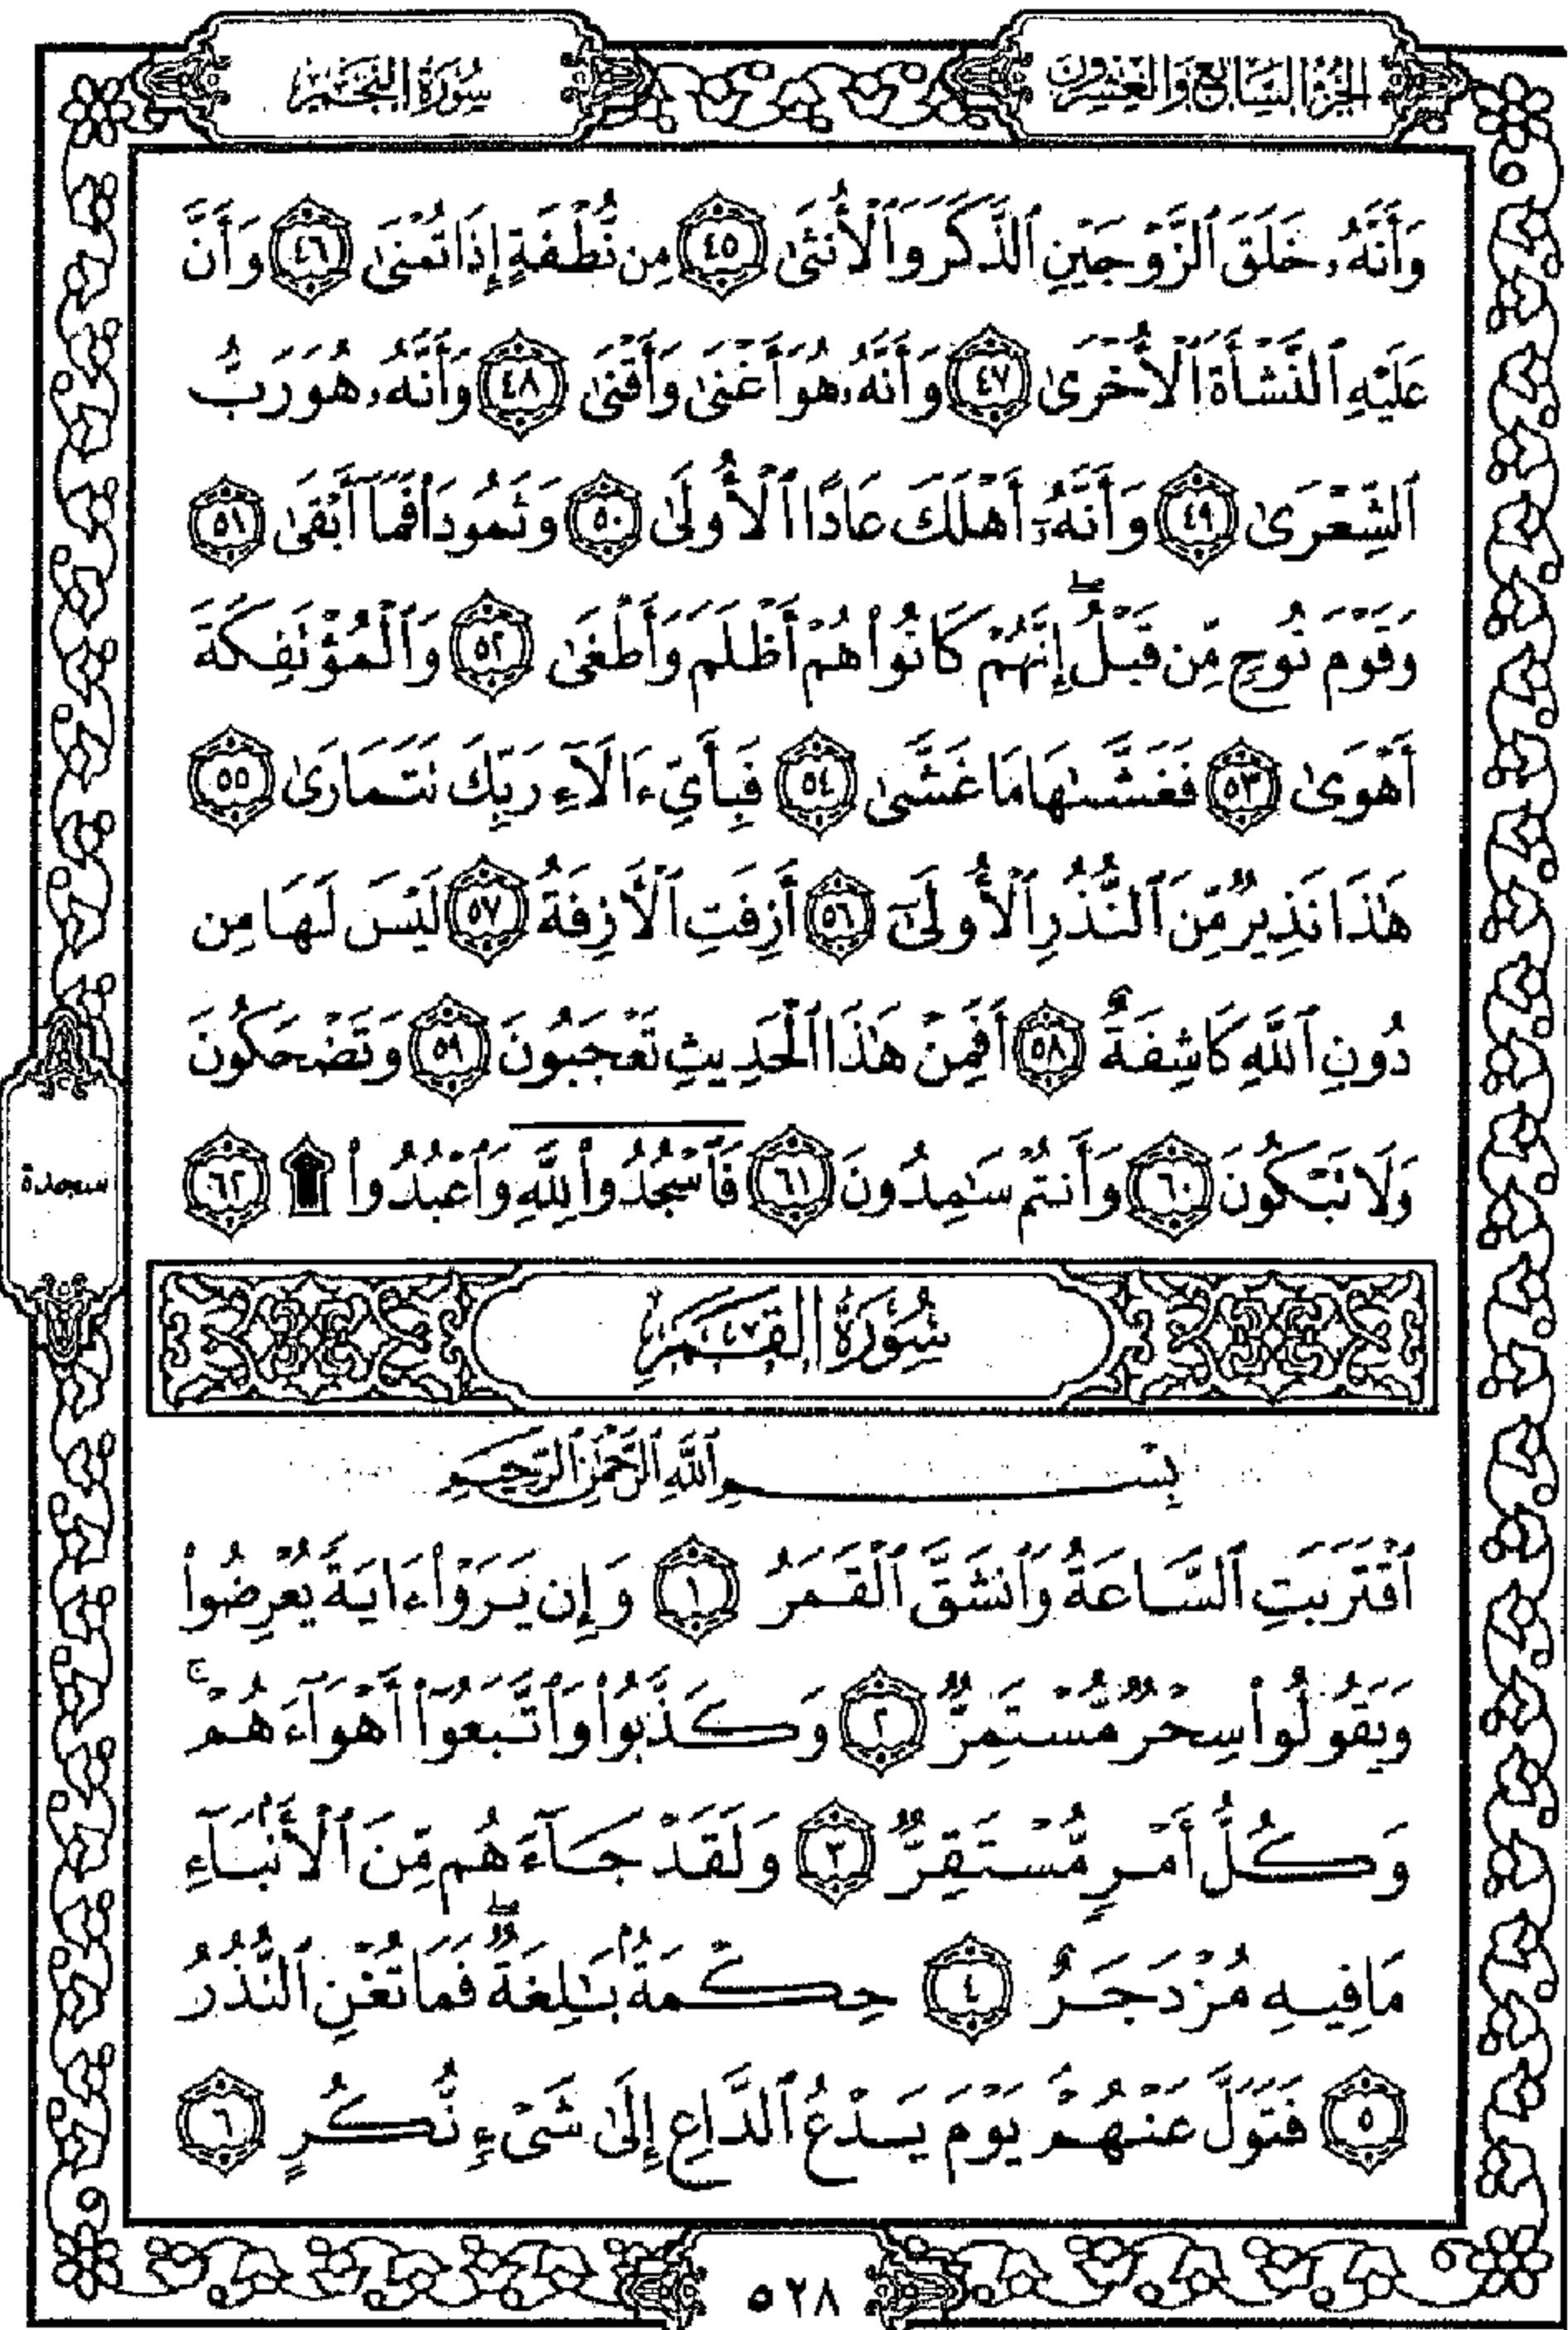 الجزء السابع والعشرون
سورة النجم
وَأَنَّهُۥ خَلَقَ ٱلزَّوْجَيْنِ ٱلذَّكَرَ وَٱلْأُنثَىٰ ٤٥ مِن نُّطْفَةٍ إِذَا تُمْنَىٰ ٤٦ وَأَنَّ
عَلَيْهِ ٱلنَّشْأَةَ ٱلْأُخْرَىٰ ٤٧ وَأَنَّهُۥ هُوَ أَغْنَىٰ وَأَقْنَىٰ ٤٨ وَأَنَّهُۥ هُوَ رَبُّ
ٱلشِّعْرَىٰ ٤٩ وَأَنَّهُۥٓ أَهْلَكَ عَادًا ٱلْأُولَىٰ ٥٠ وَثَمُودَا۟ فَمَآ أَبْقَىٰ ٥١
وَقَوْمَ نُوحٍ مِّن قَبْلُ ۖ إِنَّهُمْ كَانُوا۟ هُمْ أَظْلَمَ وَأَطْغَىٰ ٥٢ وَٱلْمُؤْتَفِكَةَ
أَهْوَىٰ ٥٣ فَغَشَّىٰهَا مَا غَشَّىٰ ٥٤ فَبِأَىِّ ءَالَآءِ رَبِّكَ تَتَمَارَىٰ ٥٥
هَٰذَا نَذِيرٌ مِّنَ ٱلنُّذُرِ ٱلْأُولَىٰٓ ٥٦ أَزِفَتِ ٱلْأَزِفَةُ ٥٧ لَيْسَ لَهَا مِن
دُونِ ٱللَّهِ كَاشِفَةٌ ٥٨ أَفَمِنْ هَٰذَا ٱلْحَدِيثِ تَعْجَبُونَ ٥٩ وَتَضْحَكُونَ
وَلَا تَبْكُونَ ٦٠ وَأَنتُمْ سَٰمِدُونَ ٦١ فَٱسْجُدُوا۟ لِلَّهِ وَٱعْبُدُوا۟ ۩ ٦٢
سجدة
سُورَةُ القَمَرِ
بِسْمِ ٱللَّهِ ٱلرَّحْمَٰنِ ٱلرَّحِيمِ
ٱقْتَرَبَتِ ٱلسَّاعَةُ وَٱنشَقَّ ٱلْقَمَرُ ١ وَإِن يَرَوْا۟ ءَايَةً يُعْرِضُوا۟
وَيَقُولُوا۟ سِحْرٌ مُّسْتَمِرٌّ ٢ وَكَذَّبُوا۟ وَٱتَّبَعُوٓا۟ أَهْوَآءَهُمْ ۚ
وَكُلُّ أَمْرٍ مُّسْتَقِرٌّ ٣ وَلَقَدْ جَآءَهُم مِّنَ ٱلْأَنۢبَآءِ
مَا فِيهِ مُزْدَجَرٌ ٤ حِكْمَةٌۢ بَٰلِغَةٌ ۖ فَمَا تُغْنِ ٱلنُّذُرُ
٥ فَتَوَلَّ عَنْهُمْ ۘ يَوْمَ يَدْعُ ٱلدَّاعِ إِلَىٰ شَىْءٍ نُّكُرٍ ٦
٥٢٨